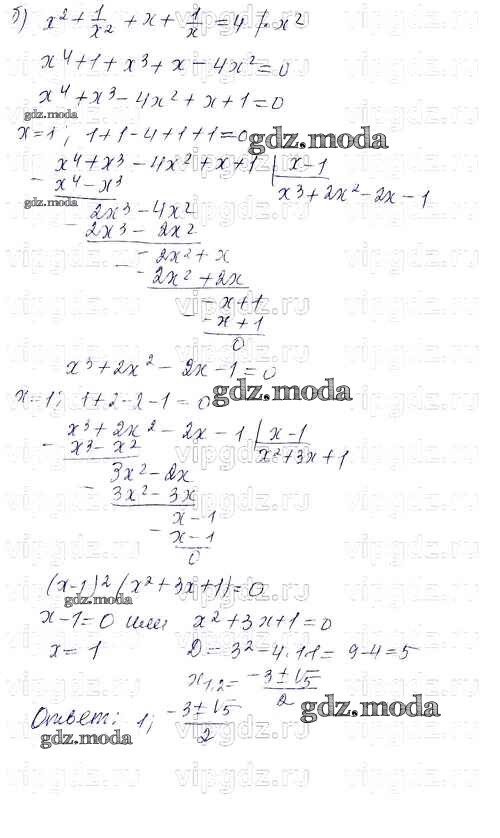 б) x² + 1/x² + x + 1/x = 4 |·x²
x⁴ + 1 + x³ + x − 4x² = 0
x⁴ + x³ − 4x² + x + 1 = 0
gdz.moda
x = 1; 1 + 1 − 4 + 1 + 1 = 0
gdz.moda
− x⁴ + x³ − 4x² + x + 1 | x − 1
x⁴ − x³ | x³ + 2x² − 2x − 1
gdz.moda
2x³ − 4x²
− 2x³ − 2x²
− 2x² + x
− − 2x² + 2x
− x + 1
− − x + 1
0
x³ + 2x² − 2x − 1 = 0
x = 1; 1 + 2 − 2 − 1 = 0
gdz.moda
− x³ + 2x² − 2x − 1 | x − 1
x³ − x² | x² + 3x + 1
3x² − 2x
− 3x² − 3x
x − 1
− x − 1
0
(x − 1)² (x² + 3x + 1) = 0
gdz.moda
x − 1 = 0 или x² + 3x + 1 = 0
x = 1 D = 3² − 4·1·1 = 9 − 4 = 5
x₁,₂ = (−3 ± √5)/2
gdz.moda
Ответ: 1; (−3 ± √5)/2
gdz.moda
vipgdz.ru